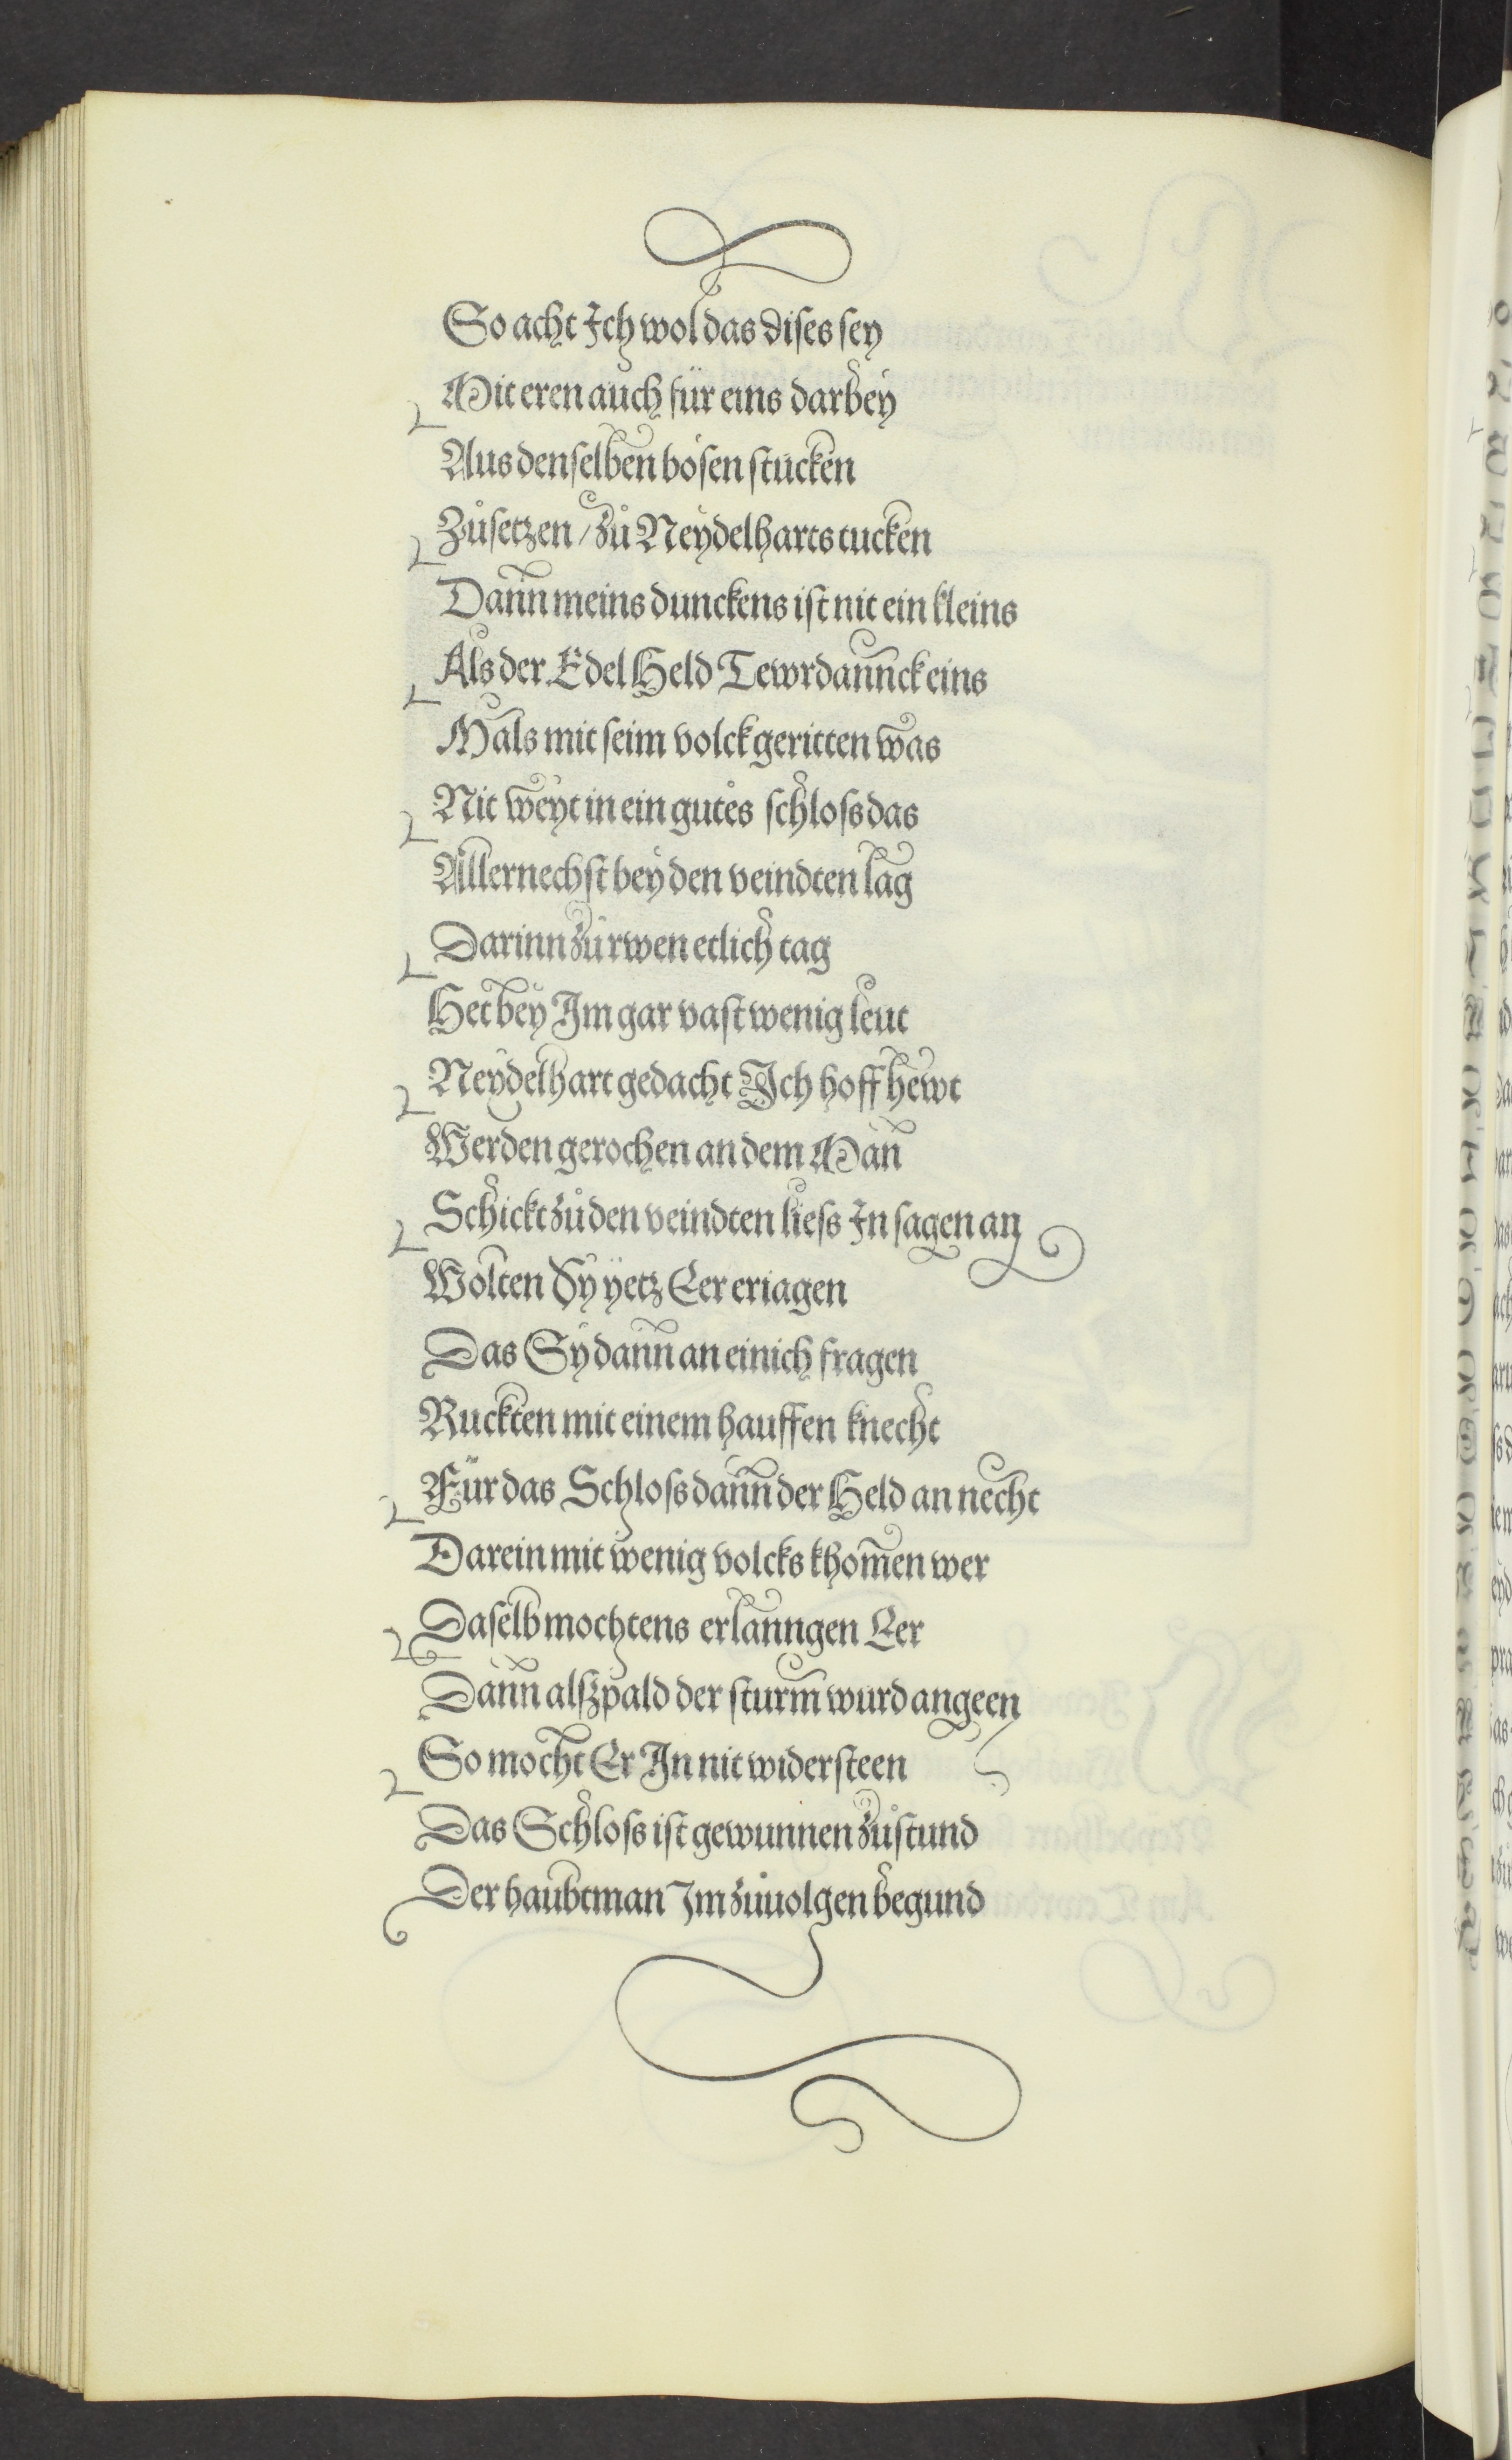 So acht Ich wol das dises sey
Mit eren auch für eins darbey
Aus denselben bösen stucken
Zůsetzen / zů Neydelharts tucken
Dann meins dunckens ist nit ein kleins
Als der Edel Held Tewrdannck eins
Mals mit seim volck geritten was
Nit weyt in ein gutes schloss das
Allernechst bey den veindten lag
Darinn zů rwen etlich tag
Het bey Im gar vast wenig leut
Neydelhart gedacht Ich hoff hewt
Werden gerochen an dem Man
Schickt zů den veindten liess In sagen an
Wolten Sy yetz Eer eriagen
Das Sy dann an einich fragen
Ruckten mit einem hauffen knecht
Für das Schloss dann der Held an necht
Darein mit wenig volcks khom̄en wer
Daselb mochtens erlanngen Eer
Dann alsspald der sturm wurd angeen
So mocht Er In nit widersteen
Das Schloss ist gewunnen zůstund
Der haubtman Im zůuolgen begund